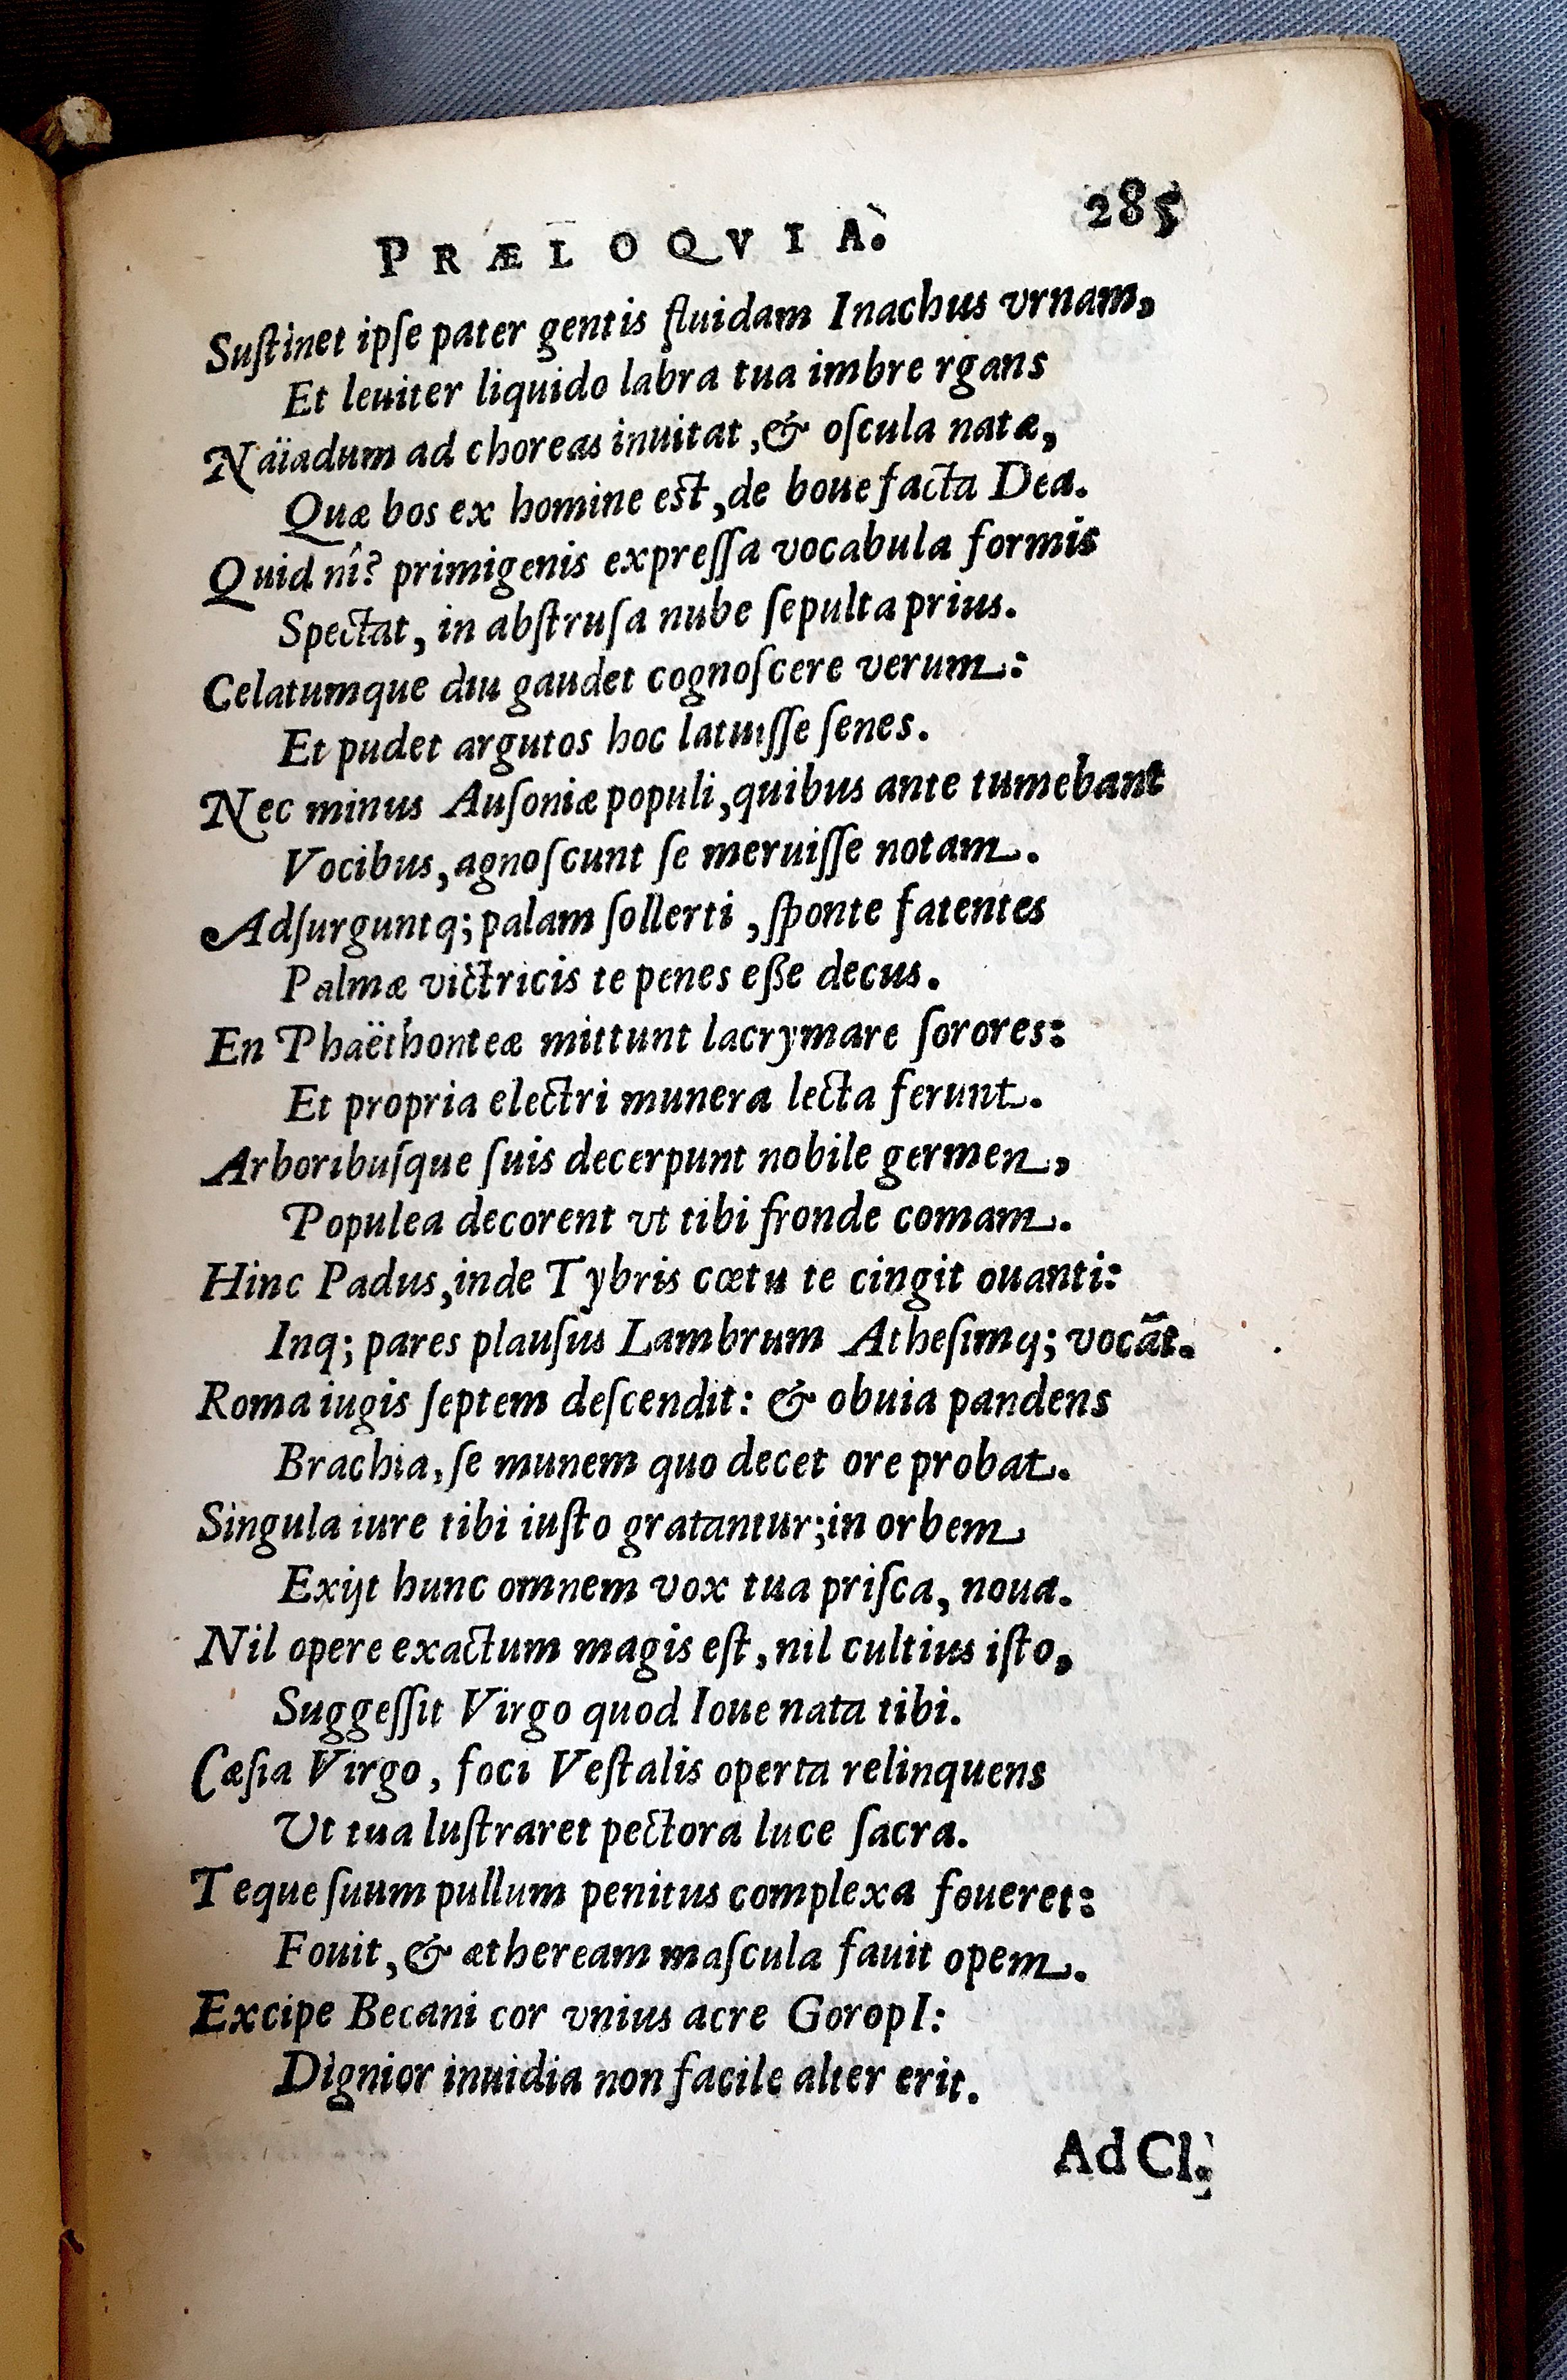 PRÆLOQVIA. 285
Suſtinet ipſe pater gentis fluidam Inachus vrnam,
Et leuiter liquido labra tua imbre rgans
Naïadum ad choreas inuitat, & oſcula natæ,
Quæ bos ex homine est, de boue facta Dea.
Quid nî? primigenis expreſſa vocabula formis
Spectat, in abſtruſa nube ſepulta prius.
Celatumque diu gaudet cognoſcere verum:
Et pudet argutos hoc latuiſſe ſenes.
Nec minus Auſoniæ populi, quibus ante tumebant
Vocibus, agnoſcunt ſe meruiſſe notam.
Adſurguntq; palam ſollerti, ſponte fatentes
Palmæ victricis te penes eſſe decus.
En Phaëthonteæ mittunt lacrymare ſorores:
Et propria electri munera lecta ferunt.
Arboribuſque ſuis decerpunt nobile germen,
Populea decorent vt tibi fronde comam.
Hinc Padus, inde Tybris cœtu te cingit ouanti:
Inq; pares plauſus Lambrum Atheſimq; vocãt.
Roma iugis ſeptem deſcendit: & obuia pandens
Brachia, ſe munem quo decet ore probat.
Singula iure tibi iuſto gratantur; in orbem
Exijt hunc omnem vox tua priſca, noua.
Nil opere exactum magis eſt, nil cultius iſto,
Suggeſſit Virgo quod Ioue nata tibi.
Cæſia Virgo, foci Veſtalis operta relinquens
Ut tua luſtraret pectora luce ſacra.
Teque ſuum pullum penitus complexa foueret:
Fouit, & ætheream maſcula fauit opem.
Excipe Becani cor vnius acre GoropI:
Dignior inuidia non facile alter erit.
Ad Cl.